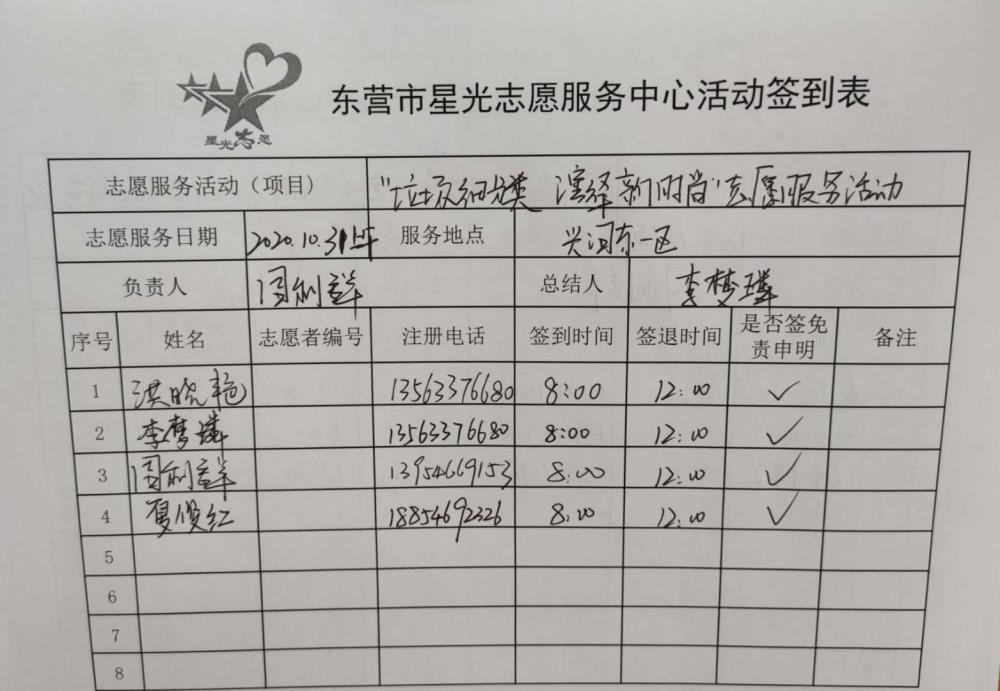 星光志愿
东营市星光志愿服务中心活动签到表
志愿服务活动（项目） "垃圾分类 演绎新时尚"志愿服务活动
志愿服务日期 2020.10.31上午 服务地点 兴河东一区
负责人 周利群 总结人 李梦璘
序号 姓名 志愿者编号 注册电话 签到时间 签退时间 是否签免责申明 备注
1 洪晓艳 13563376680 8:00 12:00 ✓
2 李梦璘 13563376680 8:00 12:00 ✓
3 周利群 13954669153 8:00 12:00 ✓
4 夏俊红 18854692326 8:00 12:00 ✓
5
6
7
8